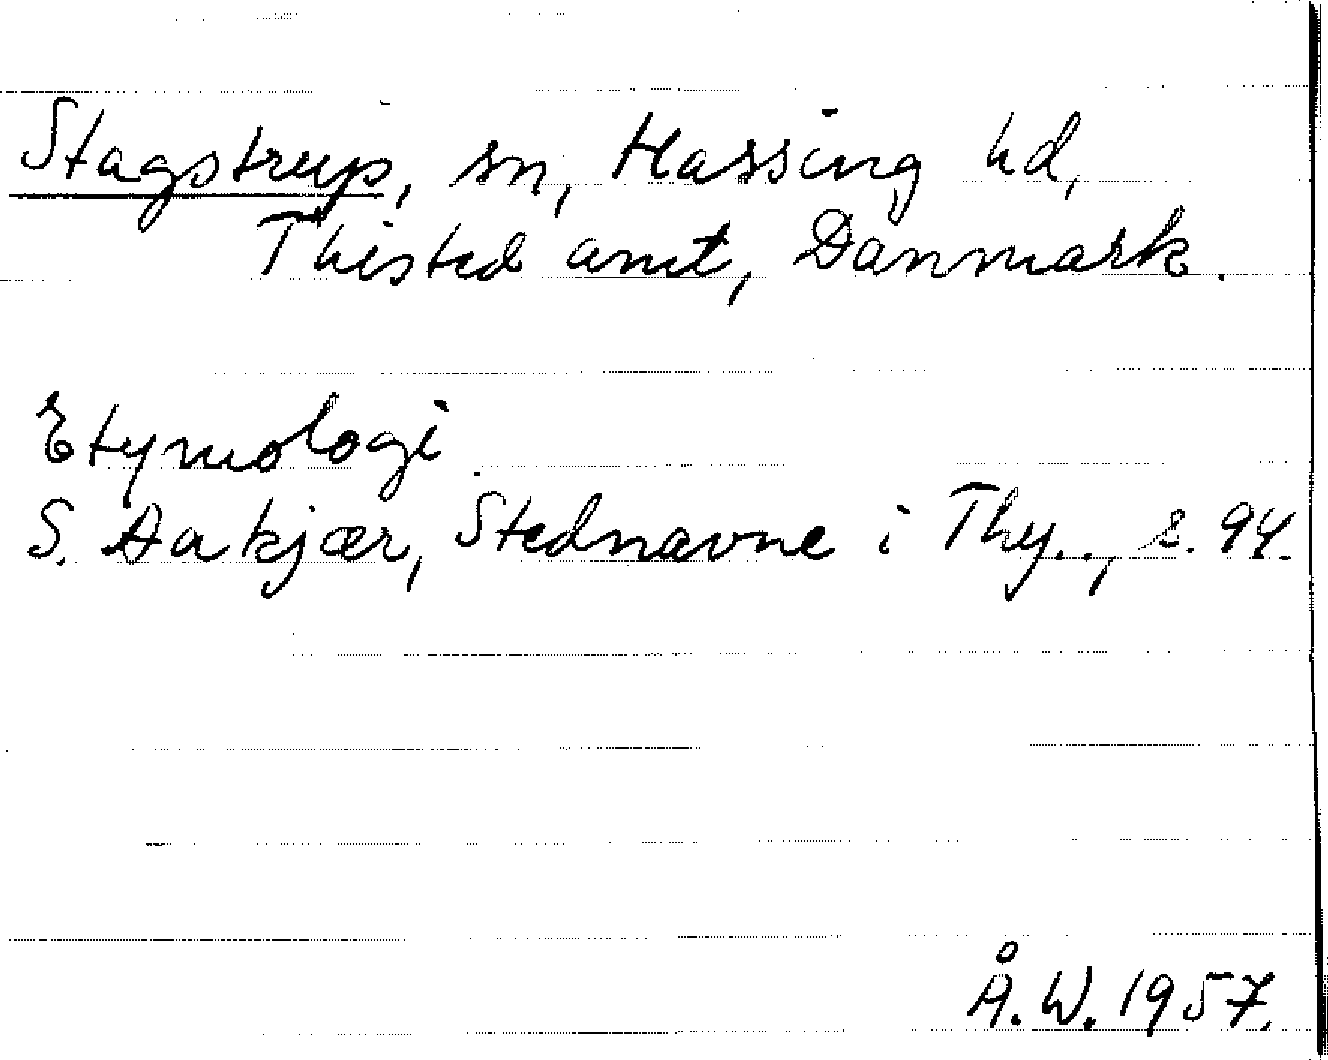 Stagstrup, sn, Hassing hd,
Thisted amt, Danmark.
Etymologi
S. Aakjær, Stednavne i Thy.., s. 94.
Å.W. 1957.